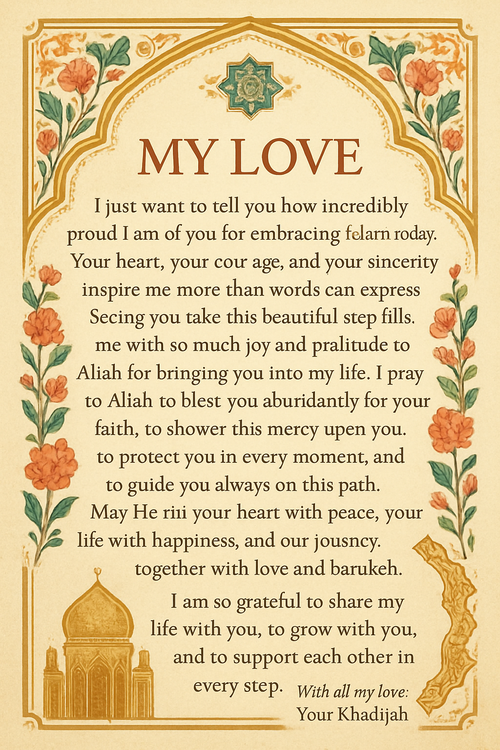 MY LOVE
I just want to tell you how incredibly
proud I am of you for embracing felarn roday.
Your heart, your cour age, and your sincerity
inspire me more than words can express
Secing you take this beautiful step fills.
me with so much joy and pralitude to
Aliah for bringing you into my life. I pray
to Aliah to blest you aburidantly for your
faith, to shower this mercy upen you.
to protect you in every moment, and
to guide you always on this path.
May He riii your heart with peace, your
life with happiness, and our jousncy.
together with love and barukeh.
I am so grateful to share my
life with you, to grow with you,
and to support each other in
every step.
With all my love:
Your Khadijah